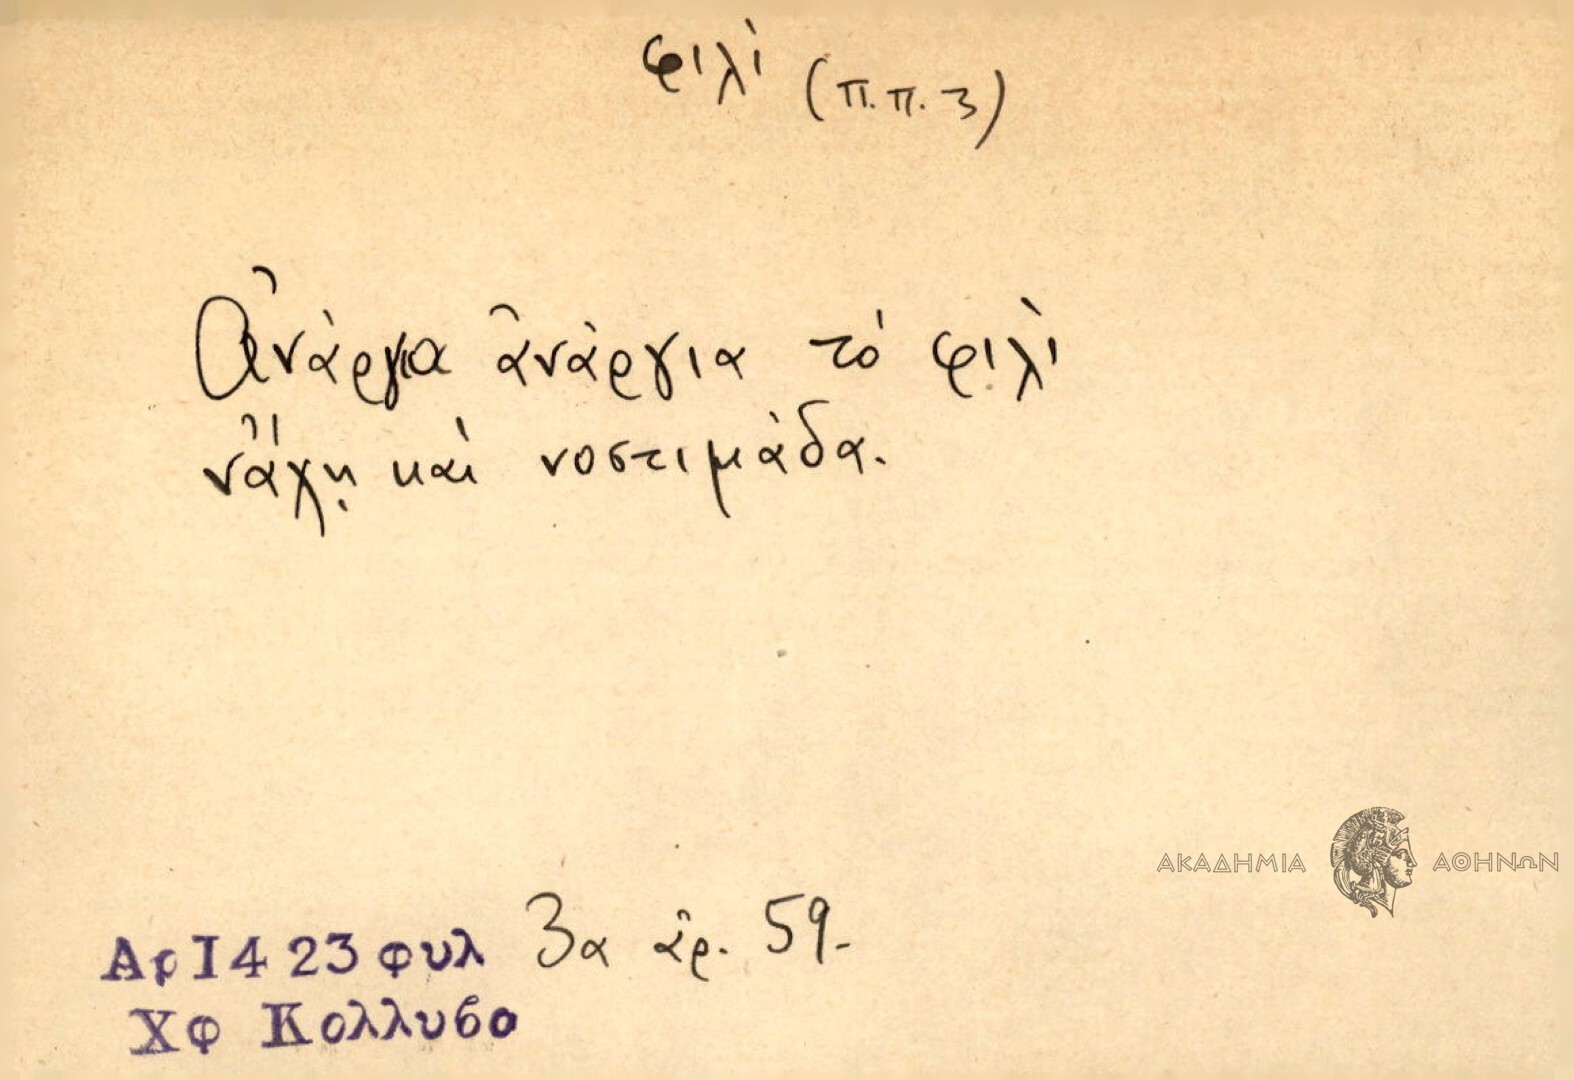 φιλὶ (π.π. 3)
Ἀνάργια ἀνάργια τό φιλὶ
νἄχῃ καὶ νοστιμάδα.
ΑΚΑΔΗΜΙΑ ΑΘΗΝΩΝ
Αρ 1423 φυλ 3α ἀρ. 59.
Χφ Κολλυβα